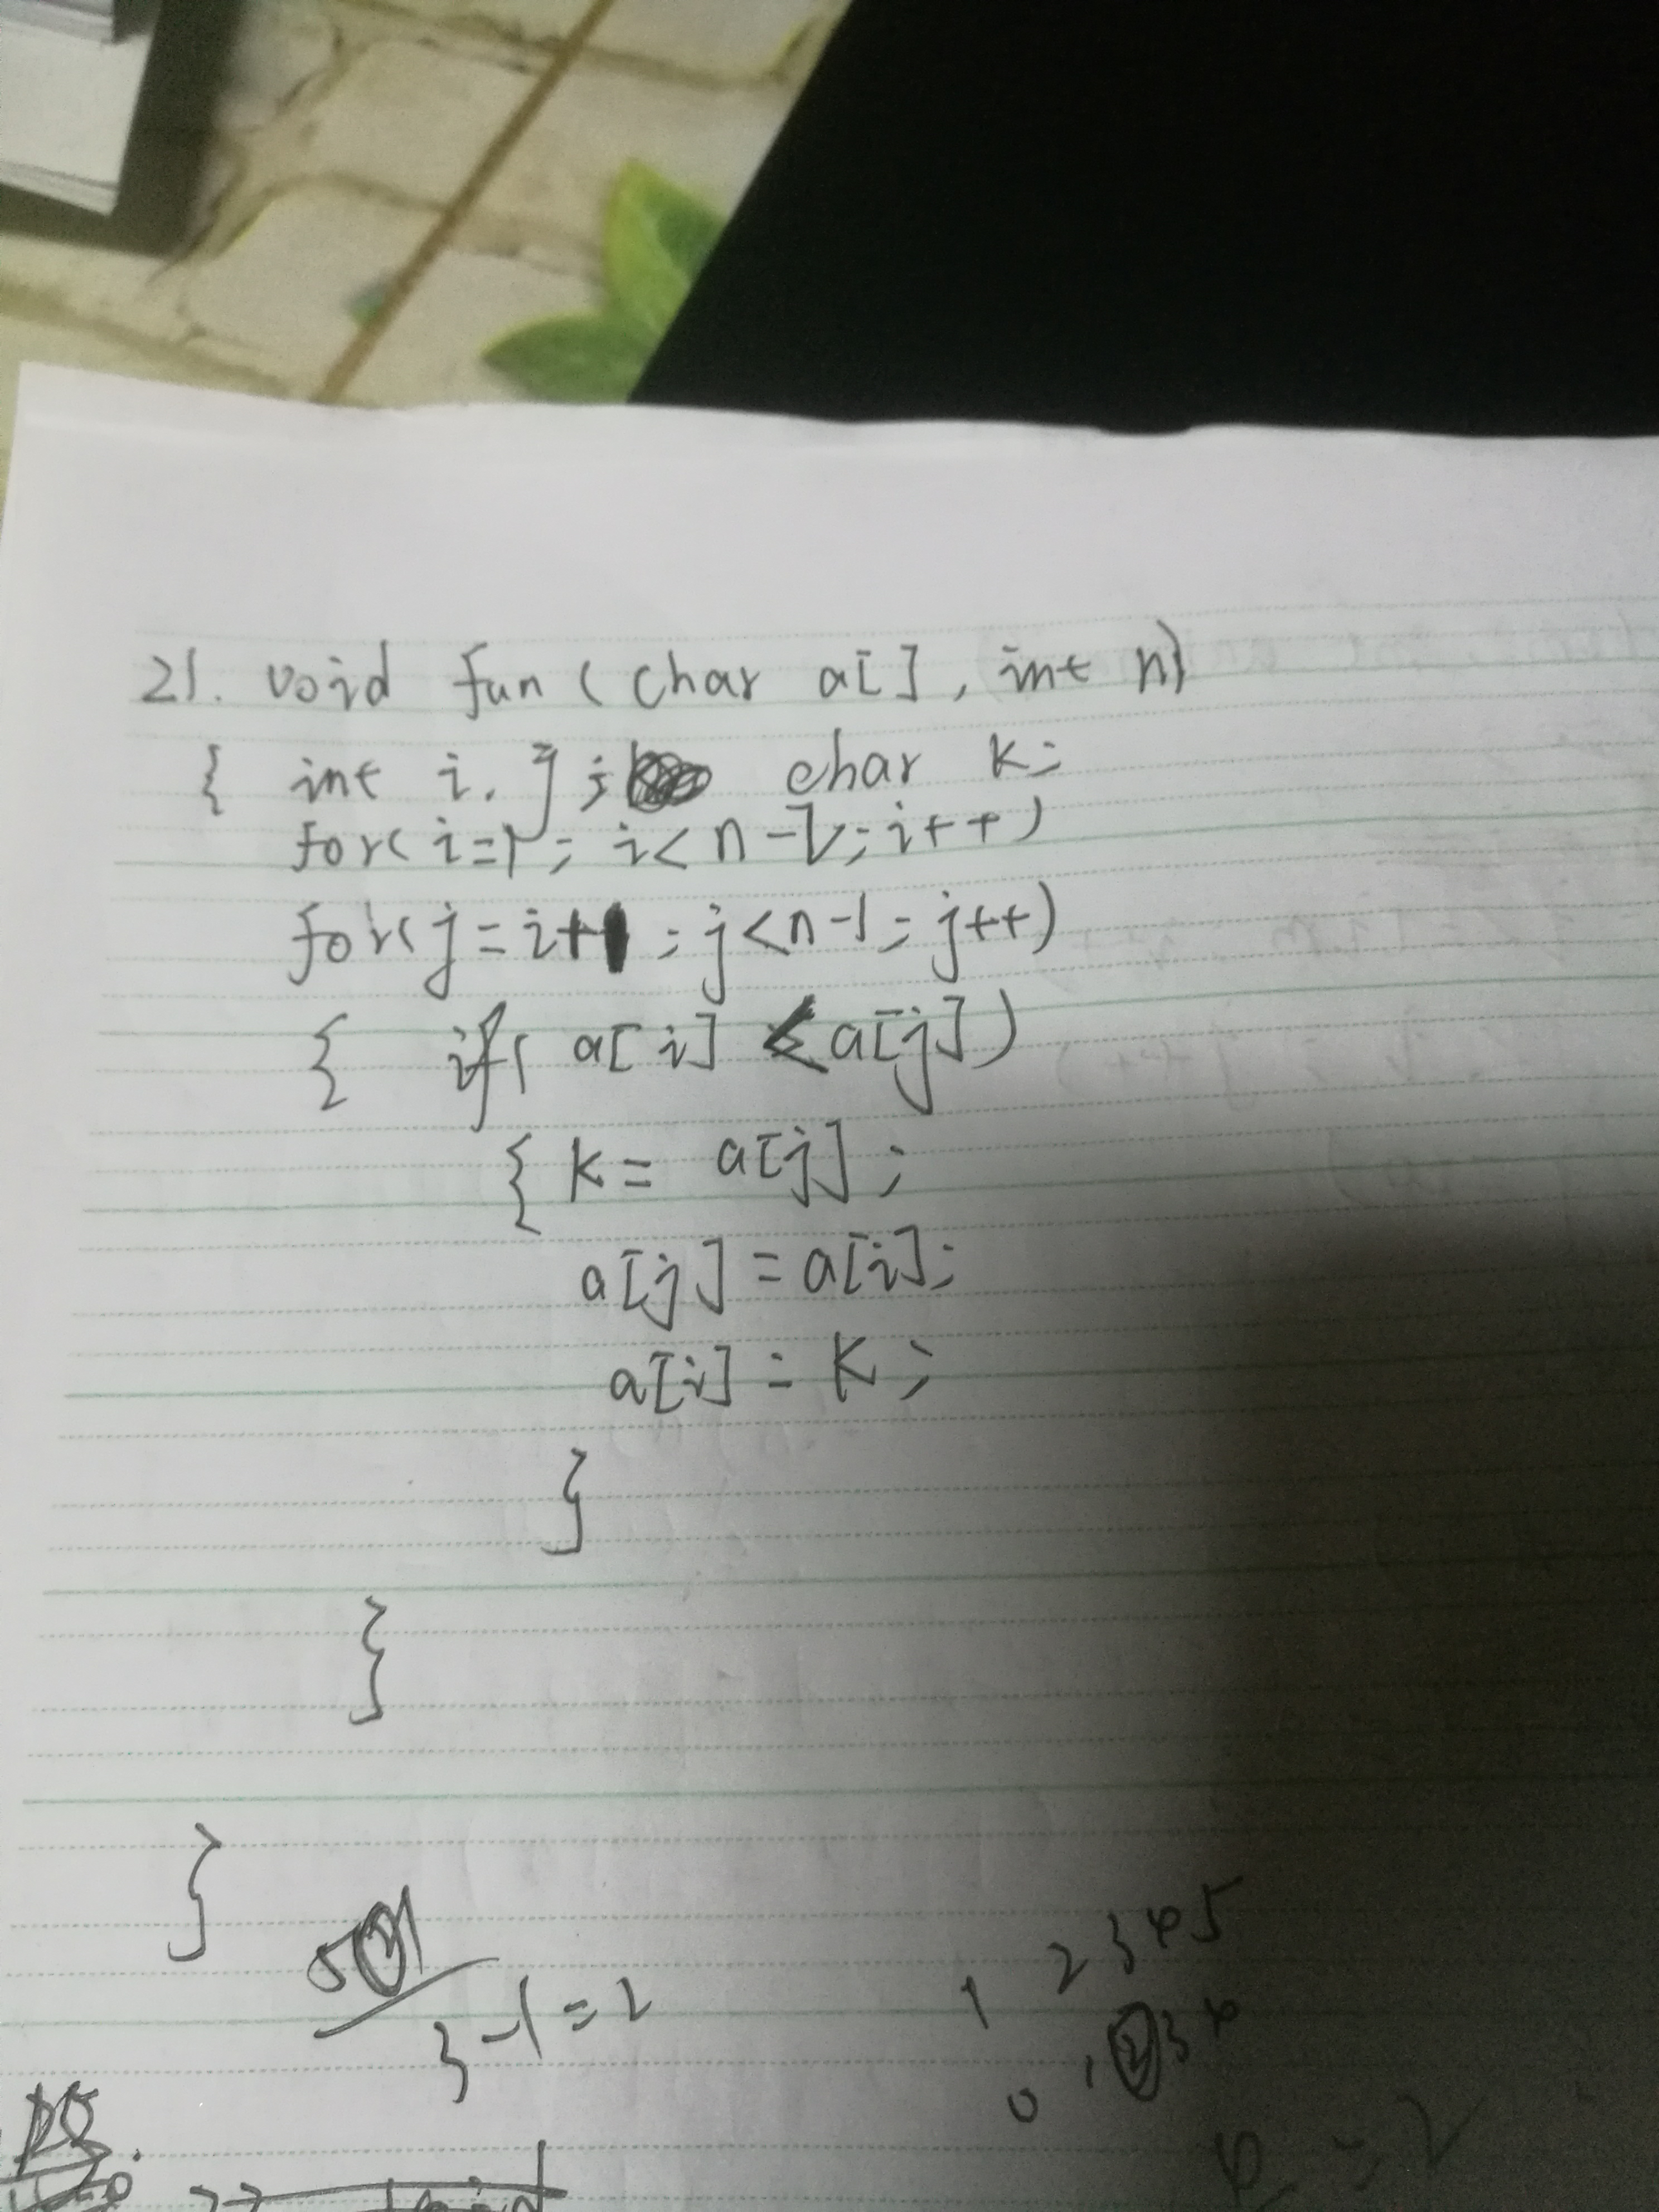 21. void fun ( char a[], int n)
{ int i, j; char k;
for( i=1; i< n-2; i++)
for( j= i+1 ; j<n-1; j++)
{ if( a[i] < a[j] )
{ k= a[j];
a[j] = a[i];
a[i] = k;
}
}
}
3-1=2
1 2 3 4 5
0 1 2 3 4